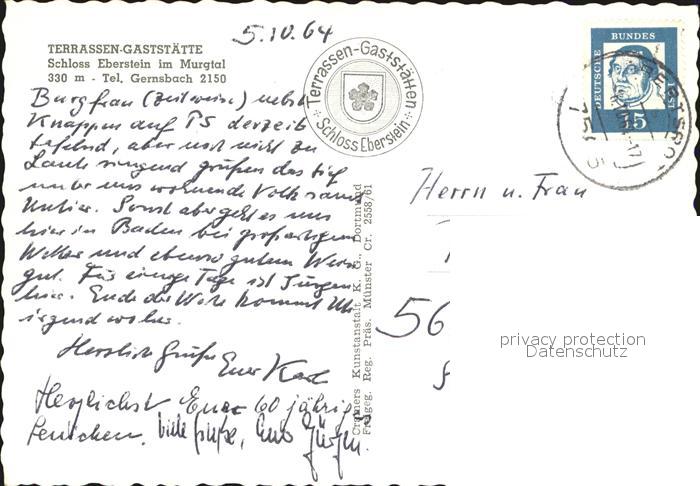 5.10.64
TERRASSEN-GASTSTÄTTE
Schloss Eberstein im Murgtal
330 m - Tel. Gernsbach 2150
Terrassen-Gaststätten
Schloss Eberstein
DEUTSCHE BUNDESPOST
15
Burgfrau (zeitweise) nebst
Knappen auf PS derzeit
tafelnd, aber noch nicht zu
Laute singend grüßen das tief
unter uns wohnende Volk samt
Untier. Sonst aber geht es uns
hier in Baden bei großartigem
Wetter und ebenso gutem Wein
gut. Für einige Tage ist Jürgen
hier. Ende der Woche kommt
irgendwoher.
Herzliche Grüße Euer Karl
Herzlichst Eure 60 jährige
Lenichen. Viele Grüße, Euer Jürgen.
Cramers Kunstanstalt K. G., Dortmund
Freigeg. Reg. Präs. Münster Cr. 2558/61
Herrn u. Frau
56
privacy protection
Datenschutz